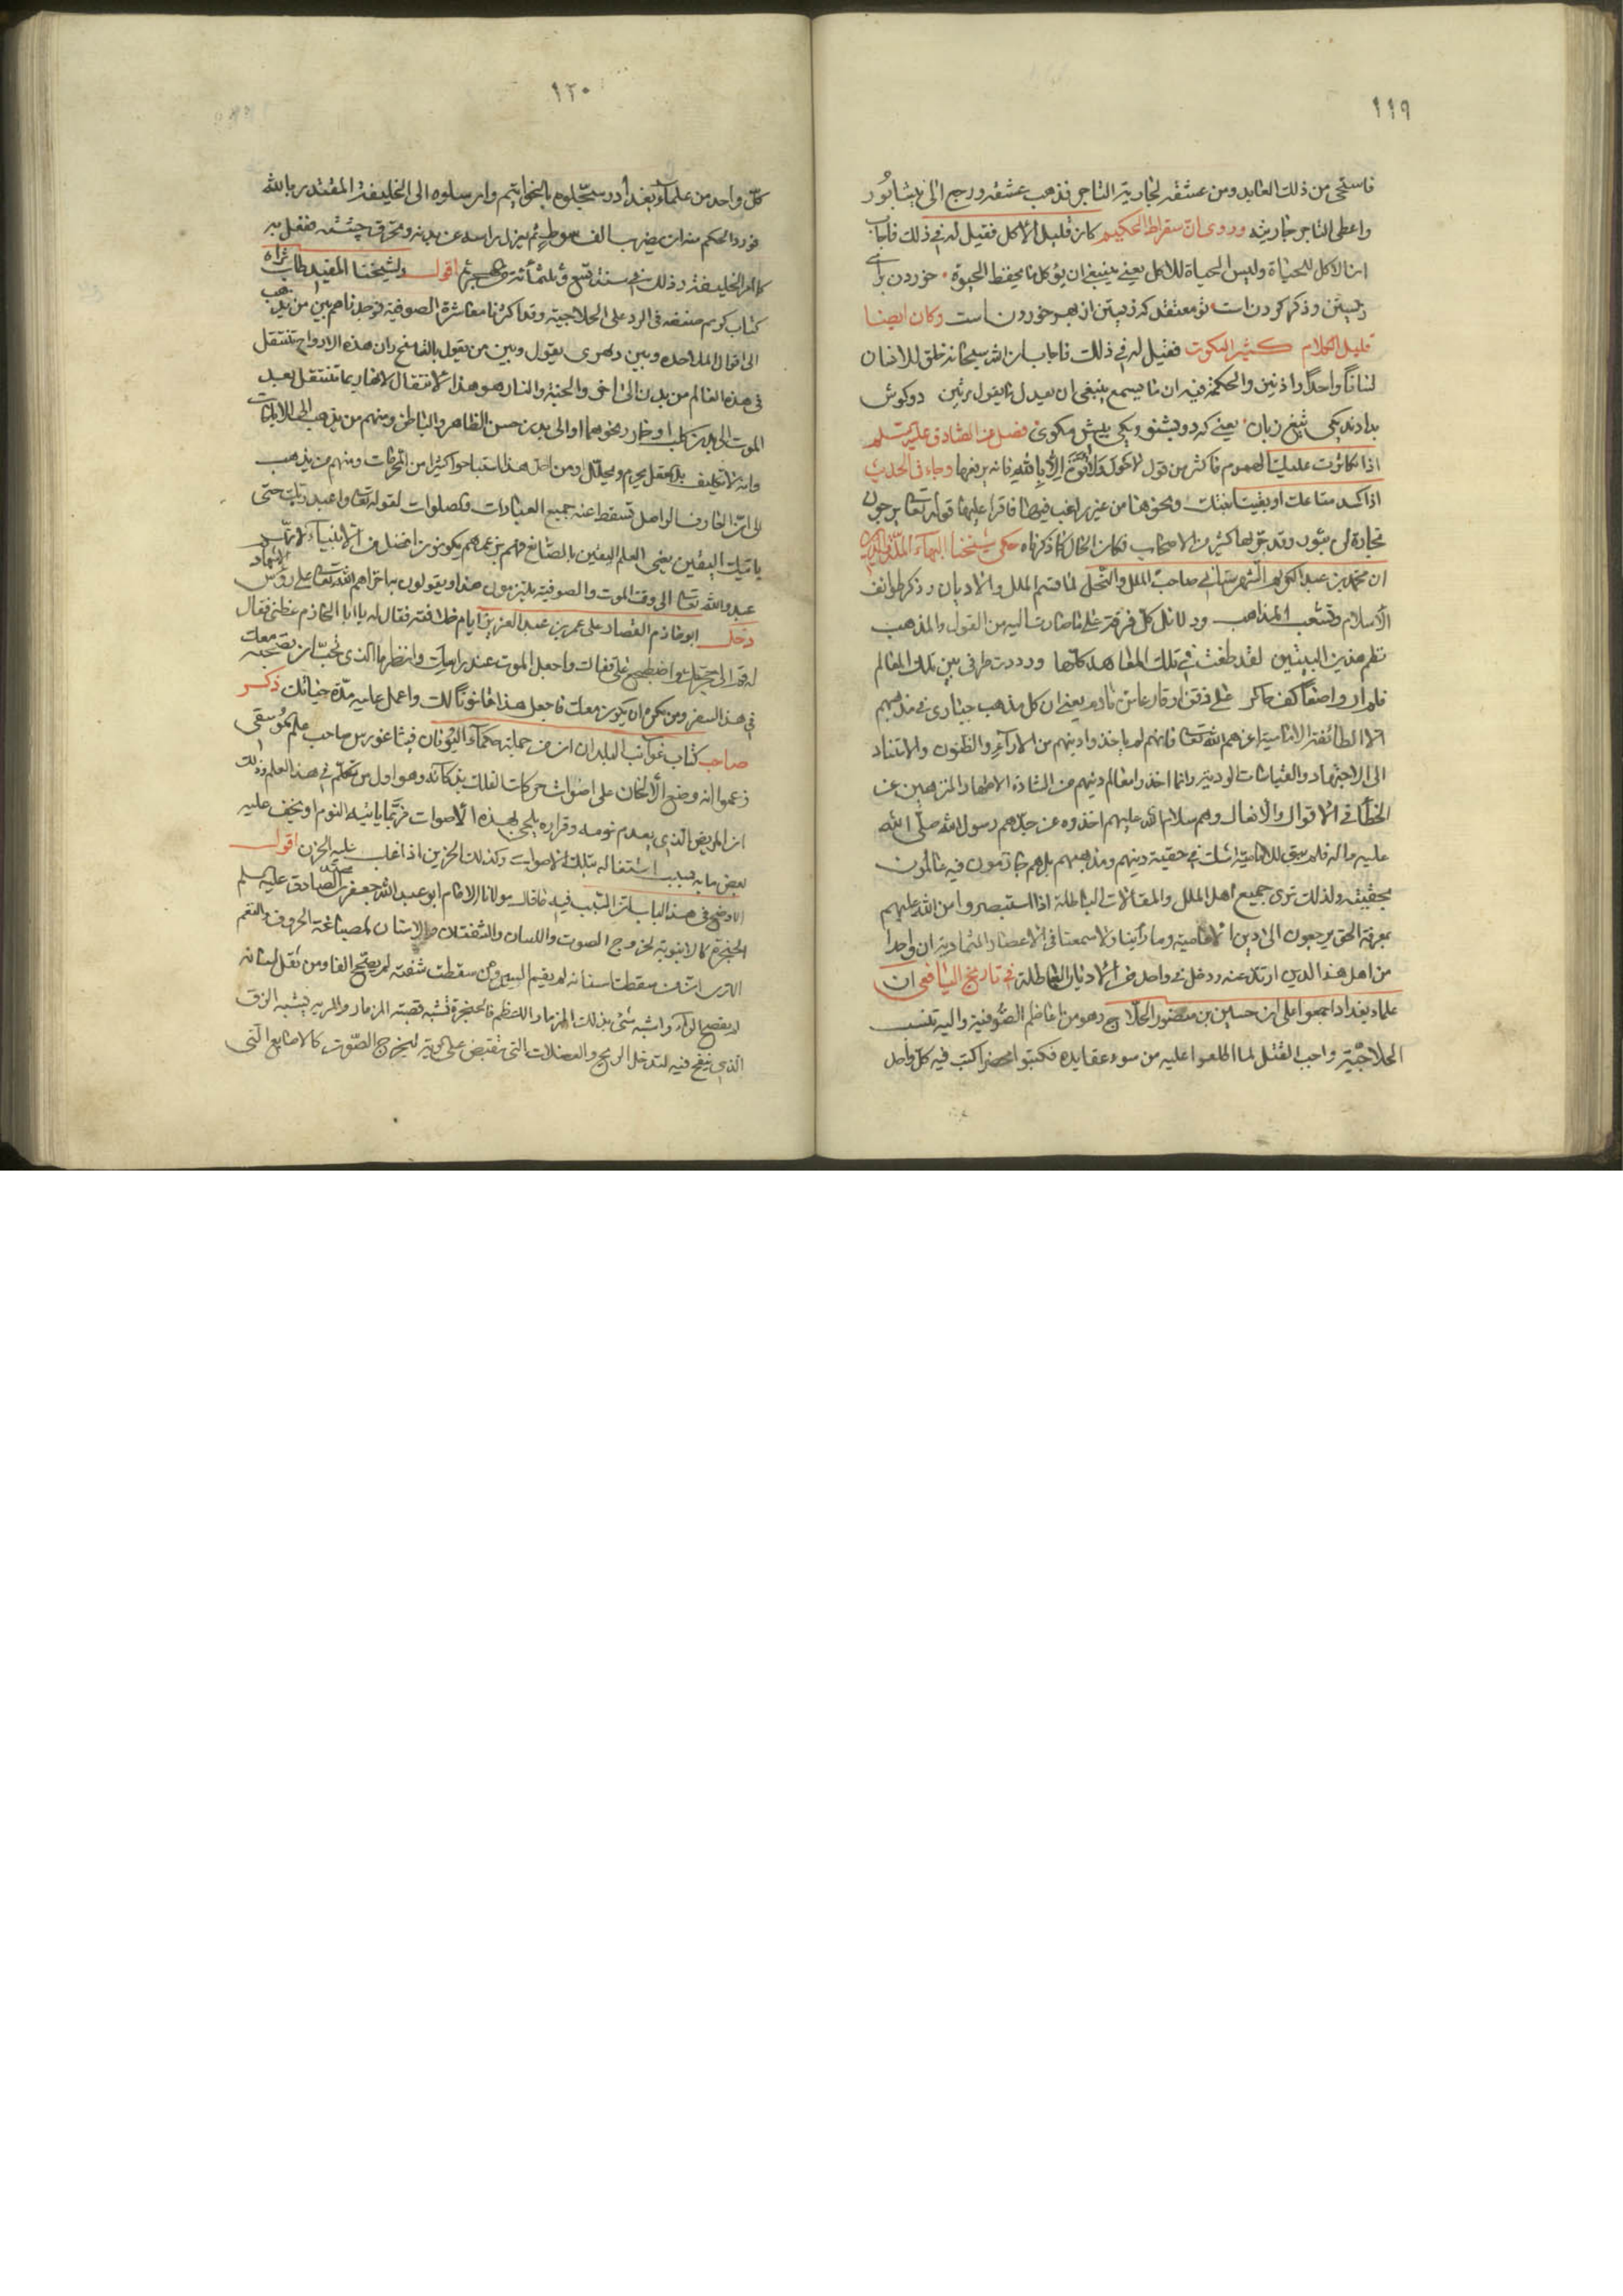 ١١٩
فاستحى من ذلك العابد ومن عشقه لجارية التاجر فذهب عشقه ورجع الى نيشابور
واعطى التاجر جاريته وروى ان سقراط الحكيم كان قليل الاكل فقيل له في ذلك فاجاب
ان الاكل للحياة وليس الحياة للاكل يعني ينبغي ان يؤكل ما يحفظ الحيوة خوردن براي
زيستن وذكر كردن است تو معتقد كه زيستن از بهر خوردن است وكان ايضا
قليل الكلام كثير السكوت فقيل له في ذلك فاجاب ان الله سبحانه خلق للانسان
لسانا واحدا واذنين والحكمة فيه ان ما يسمع ينبغي ان يعدل ما يقول مرتين دو كوش
بدادند يكي تيغ زبان يعني كه دو بشنو ويكي بيش مكوى فصل عن الصادق عليه سلم
اذا تكاثرت عليك الهموم فاكثر من قول لا حول ولا قوة الا بالله فانه يرفعها وجاء في الحديث
اذا كسد متاعك او بقيت ابنتك ونحوهما من غير راغب فيهما فاقرا عليها قوله تعالى يرجون
تجارة لن تبور وقد جربها كثير من الاصحاب فكان الحال كما ذكرناه حكى شيخنا البهاء
ان محمد بن عبد الكريم الشهرستاني صاحب الملل والنحل لما قسم الملل والاديان وذكر طوائف
الاسلام وتشعب المذاهب ودلائل كل فرقة على ما صارت اليه من القول والمذهب
نظم هذين البيتين لقد طفت في تلك المعاهد كلها ورددت طرفي بين تلك المعالم
فلم ار واضعا كف حائر على ذقن او قارعا سن نادم يعني ان كل مذهب حيارى في مذهبهم
الا الطائفة الامامية اعزهم الله تعالى فانهم لم ياخذوا دينهم من الاراء والظنون والاستناد
الى الاجتهاد والقياسات الردية وانما اخذوا معالم دينهم من السادة الاطهار المنزهين عن
الخطا في الاقوال والافعال وهم سلام الله عليهم اخذوه عن جدهم رسول الله صلى الله
عليه واله فلم يبق للامامية شك في حقية دينهم ومذهبهم بل هم جازمون فيه عالمون
بحقيقته ولذلك ترى جميع اهل الملل والمقالات الباطلة اذا استبصروا من الله عليهم
بمعرفة الحق يرجعون الى دين الامامية وما راينا ولا سمعنا في الاعصار المتمادية ان واحدا
من اهل هذا الدين ارتد عنه ودخل في واحد من الاديان الباطلة في تاريخ اليافعي ان
علماء بغداد اجمعوا على ان حسين بن منصور الحلاج وهو من اعاظم الصوفية واليه تنسب
الحلاجية واجب القتل لما اطلعوا عليه من سوء عقايده فكتبوا محضرا كتب فيه كل واحد
١٢٠
كل واحد من علماء بغداد وسجلوه بالخواتيم وارسلوه الى الخليفة المقتدر بالله
فورد الحكم منه ان يضرب الف سوط ثم يزل راسه عن بدنه وتحرق جثته ففعل به
كما امر الخليفة وذلك في سنة تسع وثلثمائة اقول ولشيخنا المفيد طاب ثراه
كتاب كريم صنفه في الرد على الحلاجية وقد اكثرنا معاشرة الصوفية فوجدناهم بين من يذهب
الى اقوال الملاحدة وبين دهرى يقول وبين من يقول بالتناسخ وان هذه الارواح تنتقل
في هذا العالم من بدن الى اخر والجنة والنار هو هذا الانتقال لانها ربما تنتقل بعد
الموت الى بدن كلب او حمار ونحوهما او الى بدن حسن الظاهر والباطن ومنهم من يذهب الى الاباحات
وانه لا تكليف بل العقل يحرم ويحلل ومن اجل هذا استباحوا كثيرا من المحرمات ومنهم من يذهب
الى ان العارف الواصل تسقط عنه جميع العبادات والصلوات لقوله تعالى واعبد ربك حتى
ياتيك اليقين يعني العلم اليقين بالصانع فهم بزعمهم يكونون افضل من الانبياء لانهم
عبدوا الله تعالى الى وقت الموت والصوفية يلتزمون هذا ويقولون به اخزاهم الله تعالى على رؤس الاشهاد
دخل ابو حازم القصار على عمر بن عبد العزيز ايام خلافته فقال له يا ابا الحازم عظني فقال
له قم الى حجرتك واضطجع على قفاك واجعل الموت عند راسك وانظر ما الذي تحب ان تصحبه معك
في هذا السفر ومن تكره ان يكون معك فاجعل هذا قانونا لك واعمل عليه مدة حياتك ذكر
صاحب كتاب غرائب البلدان ان من جملة حكماء اليونان فيثاغورس صاحب علم الموسيقى
زعموا انه وضع الالحان على اصوات حركات الفلك بذكائه وهو اول من تكلم في هذا العلم وذلك
ان المريض الذي يعدم نومه وقراره يلهى بهذه الاصوات فربما ياتيه النوم او يخف عليه
بعض ما به بسبب اشتغاله بتلك الاصوات وكذلك الحزين اذا غلب عليه الحزن اقول
الاوضح في هذا الباب بل السبب فيه ما قاله مولانا الامام ابو عبد الله جعفر بن محمد الصادق عليه سلم
الحنجرة كالانبوبة لخروج الصوت واللسان والشفتان والاسنان لصياغة الحروف والنغم
الا ترى ان من سقطت اسنانه لم يقيم السين ومن سقطت شفته لم يصحح الفا ومن ثقل لسانه
لم يفصح الراء واشبه شيء بذلك المزمار الاعظم فالحنجرة تشبه قصبة المزمار والرية تشبه الزق
الذي ينفخ فيه لتدخل الريح والعضلات التي تقبض على الرية ليخرج الصوت كالاصابع التي